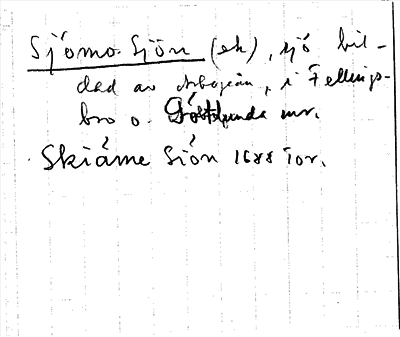 Sjömo-Sjön (ek), sjö bil-
dad av Arbogaån, i Fellings-
bro o. Götlunda snr.
Skiåme Siön 1688 Jor.